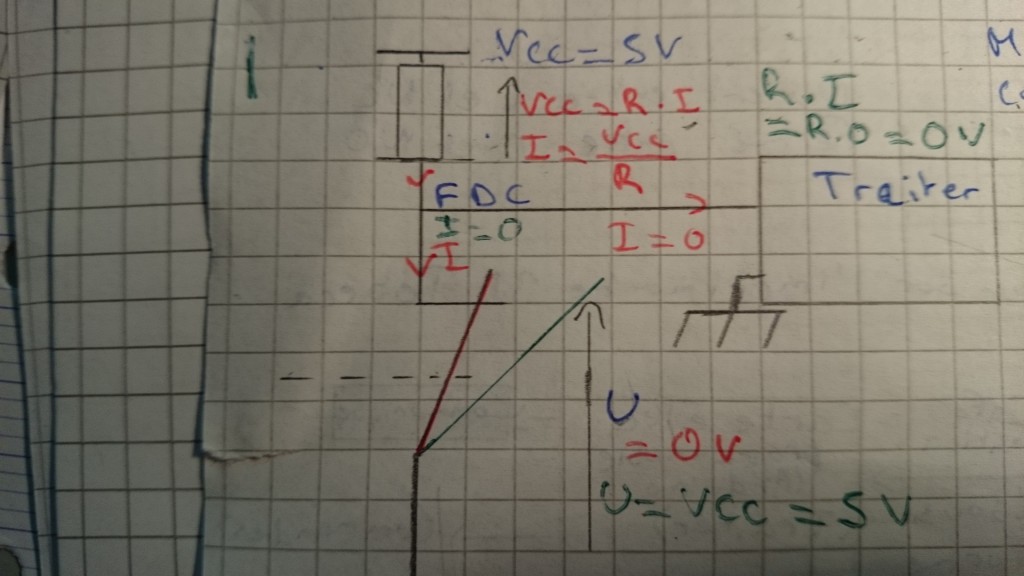 1
Vcc = 5V
Vcc = R. I
I = Vcc / R
R. I
= R.0 = 0V
Traiter
FDC
I = 0
I = 0
I
U
= 0 V
U = VCC = 5V
M